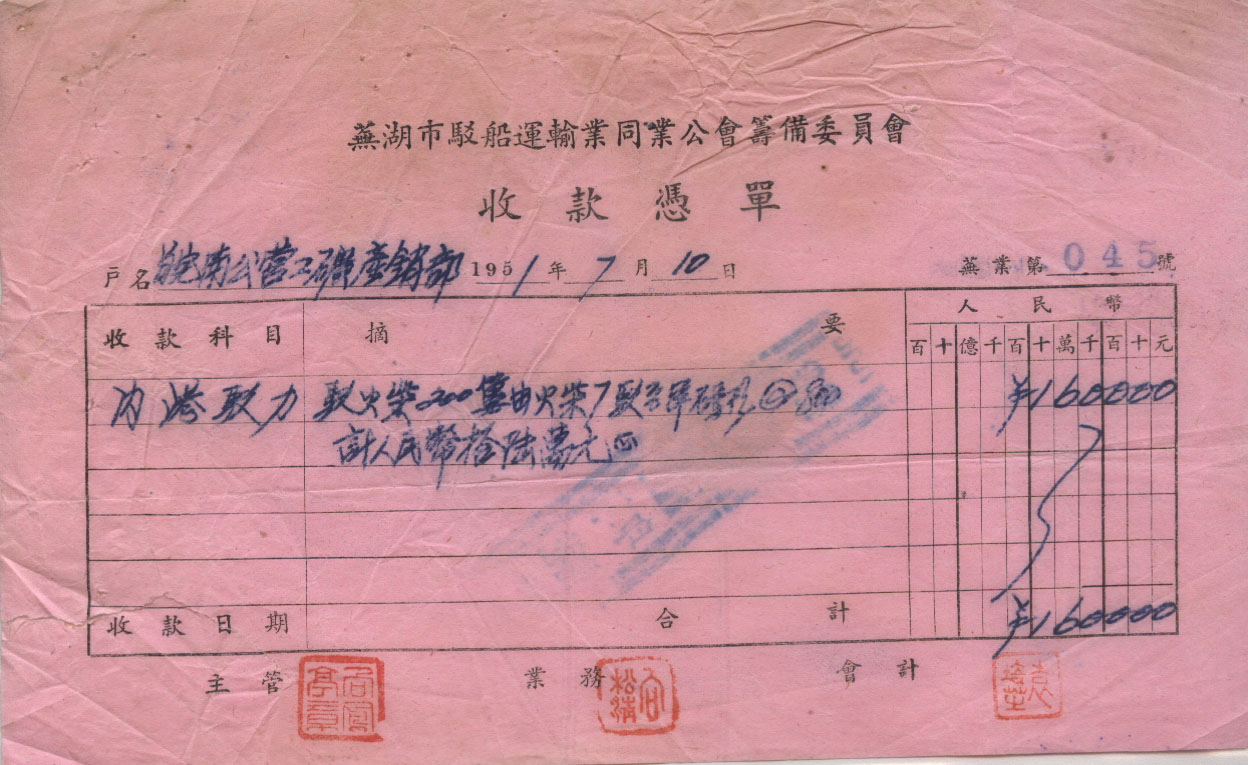 蕪湖市駁船運輸業同業公會籌備委員會
收款憑單
戶名 皖南公营工礦產銷部 1951年7月10日 蕪業第045號
收款科目 摘要 人民幣
百十億千百十萬千百十元
内港駁力 駁火柴200箩由火柴厂駁 @800 ¥160000
計人民幣拾陆萬元正
收款日期 合計 ¥160000
主管 業務 會計